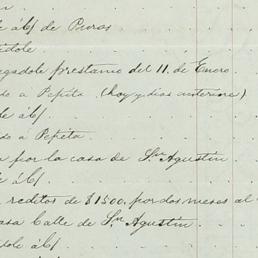 á b/ de Puros
dole
gadole prestamo del 11 de Enero.
do a Pepita (hoy y dias anteriores)
le á b/
do a Pepeta
por la casa de Sn Agustin
le á b/
reditos de $1500. por dos meses al
asa Calle de Sn Agustin.
dole á b/